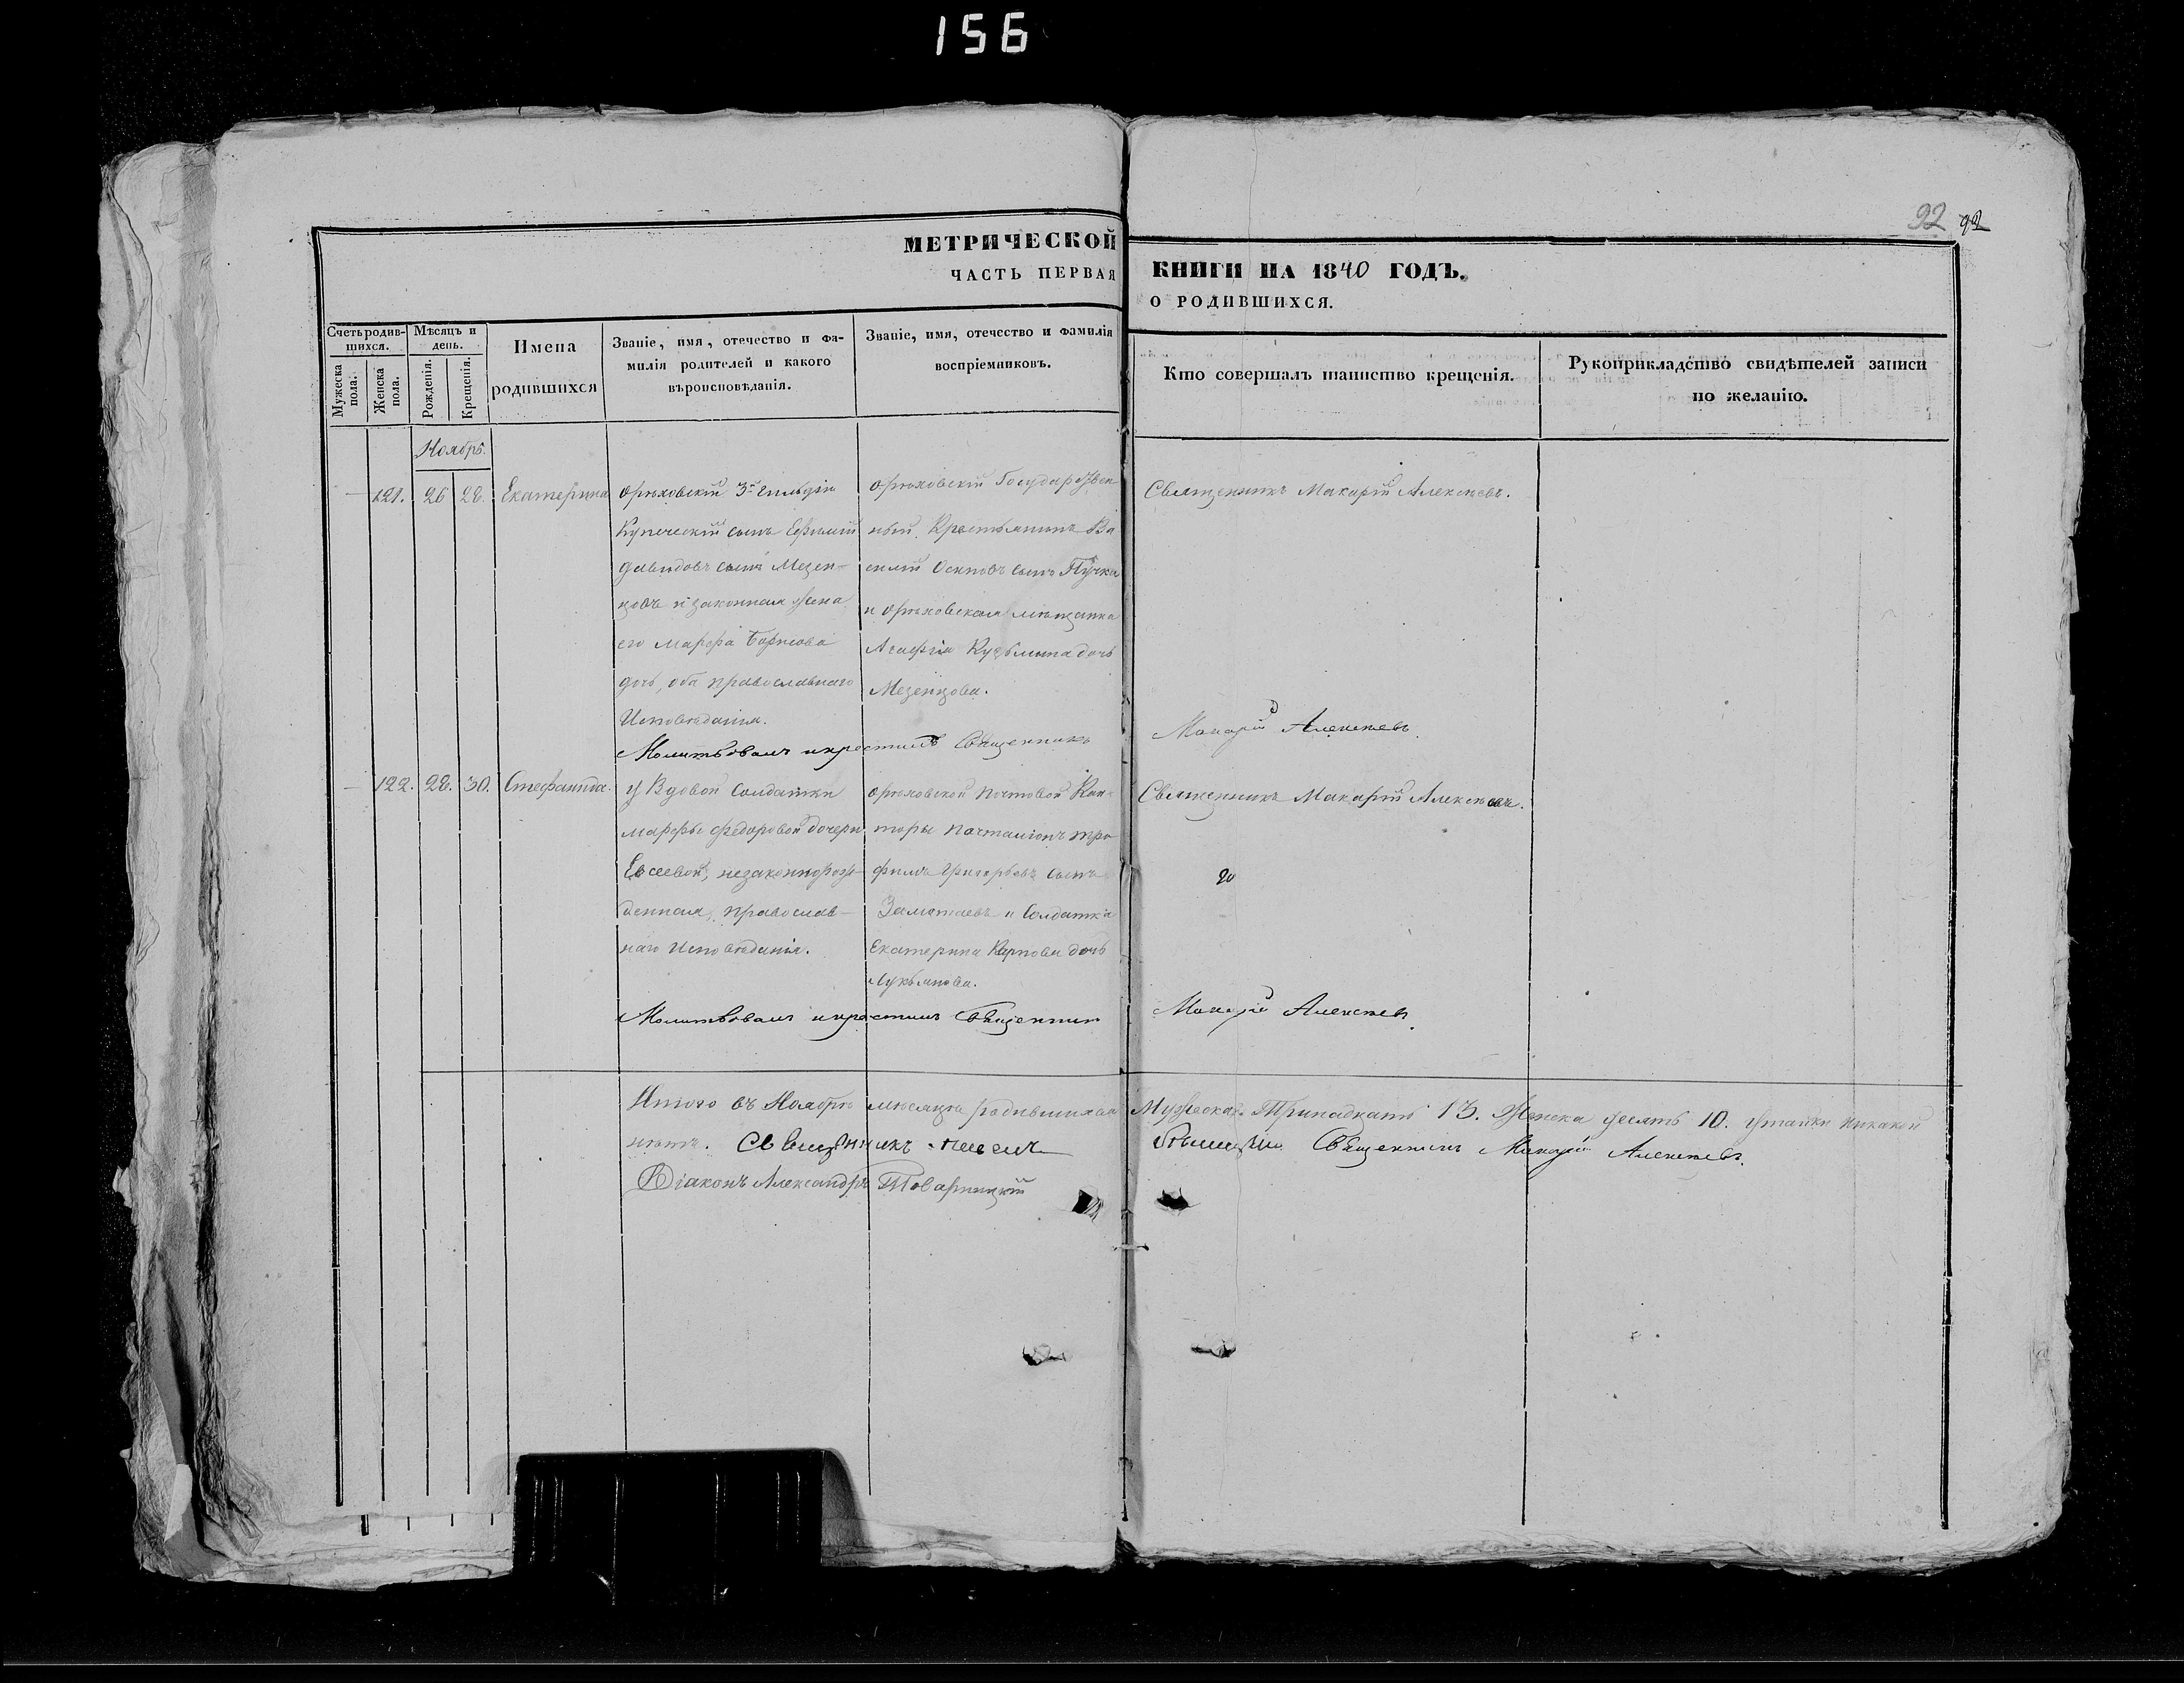 156
92 92
МЕТРИЧЕСКОЙ КНИГИ НА 1840 ГОДЪ.
ЧАСТЬ ПЕРВАЯ О РОДИВШИХСЯ.
Счетъ родившихся.
Мужеска пола.
Женска пола.
Мѣсяцъ и день.
Рожденія.
Крещенія.
Имена родившихся
Званіе, имя, отечество и фа-
милія родителей и какого
вѣроисповѣданія.
Званіе, имя, отечество и фамилія
воспріемниковъ.
Кто совершалъ таинство крещенія.
Рукоприкладство свидѣтелей записи
по желанію.
Ноябрь.
121. 26 28. Екатерина
Орѣховскій 3й гильдіи
Купеческій сынъ Ефимій
Давидовъ сынъ Мезен-
цовъ и законная жена
его Марфа Борисова
дочь, оба православнаго
Исповѣданія.
Орѣховскій Государствен
ный Крестьянинъ Ва
силій Осиповъ сынъ Пучка
и Орѣховская мѣщанка
Агафія Кузьмина дочь
Мезенцова.
Священникъ Макарій Алексѣевъ.
Молитвовалъ и крестилъ Священникъ Макарій Алексѣевъ.
122. 28. 30. Стефанида.
У Вдовой Солдатки
Марфы Федоровой дочери
Евсеевой, незаконнорож-
денная, православ-
наго Исповѣданія.
Орѣховской почтовой Кон-
торы почталіонъ Тро
фимъ Григорьевъ сынъ
и Солдатка
Екатерина Карпова дочь
Лукьянова.
Священникъ Макарій Алексѣевъ.
Молитвовалъ и крестилъ Священник Макарій Алексѣевъ.
Итого въ Ноябрѣ мѣсяцѣ родившихся Мужеска Тринадцать 13. Женска десять 10. утайки никакой
нѣтъ. Священникъ Священникъ Макарій Алексѣевъ.
Діаконъ Александръ Товарницкій